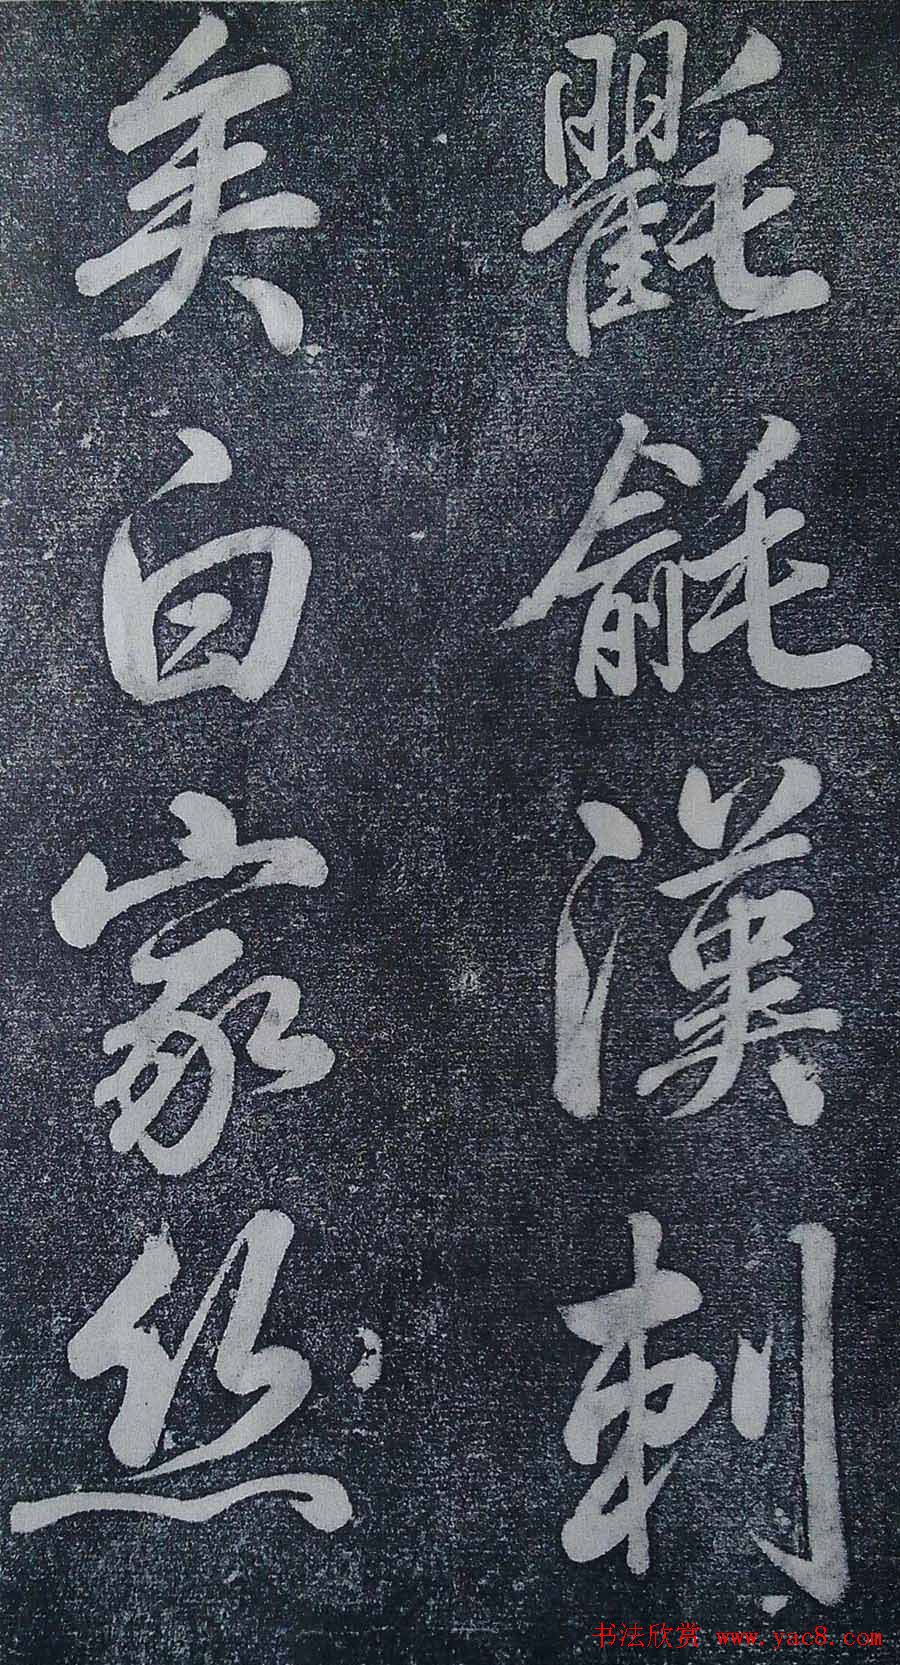 氍毹漢刺
白家丝
书法欣赏 www.yac8.com